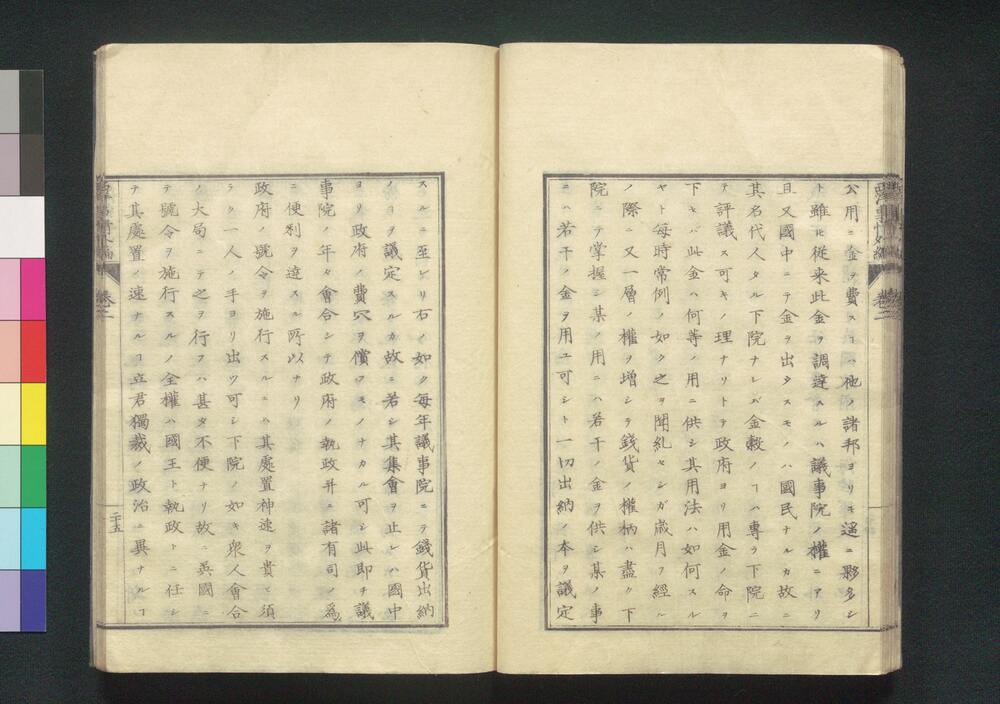 公用ニ金ヲ費スヿハ他ノ諸邦ヨリモ遥ニ夥多シ
ト雖𪜈従来此金ヲ調達スルハ議事院ノ權ニアリ
且又國中ニテ金ヲ出タスモノハ國民ナルカ故ニ
其名代人タル下院ナレバ金穀ノヿハ專ラ下院ニ
テ評議ス可キノ理ナリトテ政府ヨリ用金ノ命ヲ
下セバ此金ハ何等ノ用ニ供シ其用法ハ如何スル
ヤト每時常例ノ如ク之ヲ聞糺セシガ歳月ヲ經ル
ノ際ニ又一層ノ權ヲ增シテ錢貨ノ權柄ハ盡ク下
院ニテ掌握シ某ノ用ニハ若干ノ金ヲ供シ某ノ事
ニハ若干ノ金ヲ用ユ可シト一切出納ノ本ヲ議定
スルニ至レリ右ノ如ク每年議事院ニテ錢貨出納
ノヿヲ議定スルカ故ニ若シ其集會ヲ止レハ國中
ヨリ政府ノ費冗ヲ償フモノナカル可シ此即チ議
事院ノ年々會合シテ政府ノ執政并ニ諸有司ノ為
ニ便利ヲ達スル所以ナリ
政府ノ號令ヲ施行スルニハ其處置神速ヲ貴ヒ須
ラク一人ノ手ヨリ出ツ可シ下院ノ如キ衆人會合
ノ大局ニテ之ヲ行フハ甚タ不便ナリ故ニ英國ニ
テ號令ヲ施行スルノ全權ハ國王ト執政トニ任シ
テ其處置ノ速ナルヿ立君獨裁ノ政治ニ異ナルヿ
二十五